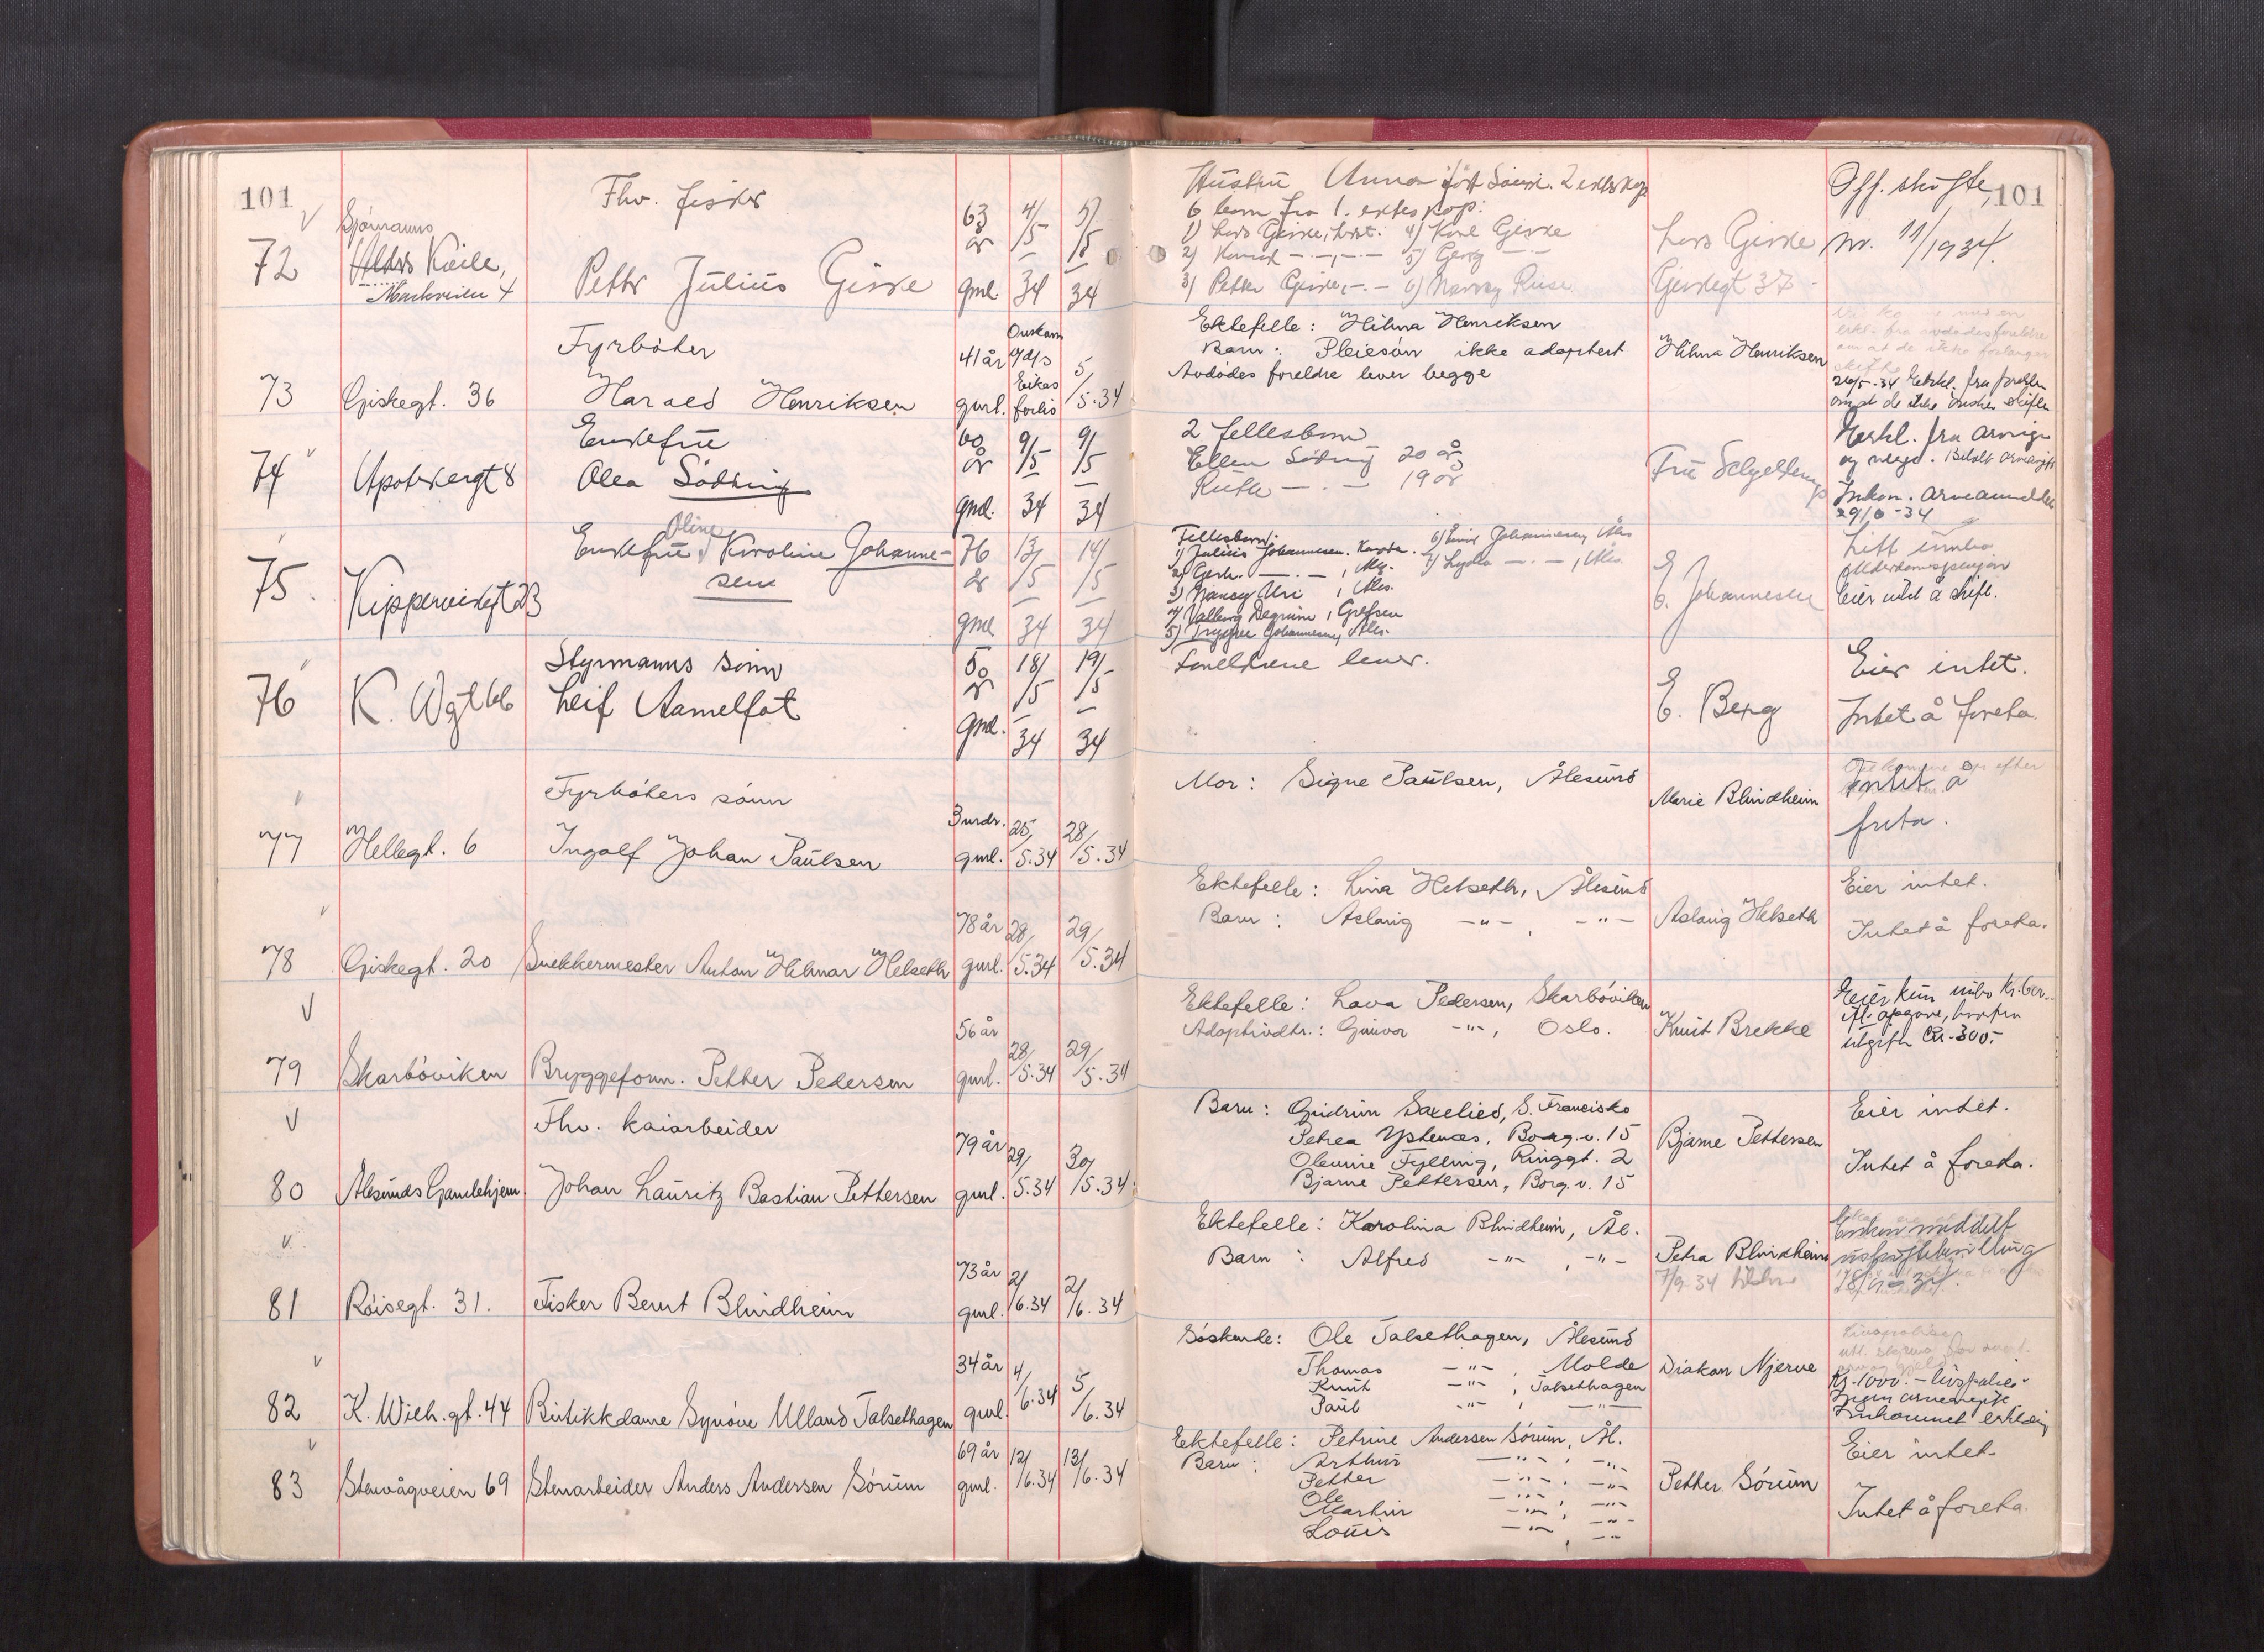 101
72
Sjømanns
Alders Kvile,
Markveien 4
Fhv. fisker
Petter Julius Giske
63 år gml.
4/5 34
5/5 34
Hustru Anna født 2 ekteskap
6 barn fra 1. ekteskap:
1) Lars Giske, 4) Karl Giske
2) Konrad —"—, —"— 5) Georg — —
3) Petter Giske, —"— 6)
Lars Giske
Giskegt 37
Off. skifte
nr. 11/1934.
101
73
Giskegt. 36
Fyrbøter
Harald Henriksen
41 år gml.
Omkom
5/5.34
Ektefelle: Hilma Henriksen
Barn: Pleiesøn ikke adoptert
Avdødes foreldre lever begge
Hilma Henriksen
fra avdødes foreldre
om at de ikke forlanger
skifte
26/5-34 Erkl. fra foreldre
om at de ikke ønsker skifte
74
Apotekergt 8
Enkefrue
Olea Sødring
60 år gml.
9/5 34
9/5 34
2 fellesbarn
Ellen Sødring 20 år
Ruth —"— 19 år
Erkl. fra
og Betalt arveavgift
Innkom.
29/6-34
75
Kippervikgt 23
Enkefrue Oline Karoline Johanne-
sen
76 år gml.
13/5 34
14/5 34
Fellesbarn:
1) Julius Johannesen. 6) Johannesen, Åles
2) —"—, 7) Lydia —"—, Åles.
3) Nancy , Åles.
4) Valborg , Grefsen
5) Trygve Johannesen, Åles.
E. Johannesen
Litt innbo
Alderdomspensjon
Eier intet å skifte.
76
K. Wgt 66
Styrmanns sønn
Leif Aamelfot
50 år gml.
18/5 34
19/5 34
Foreldrene lever.
E. Berg
Eier intet.
Intet å foreta.
77
Hellegt. 6
Fyrbøters sønn
Ingolf Johan Paulsen
3 mdr. gml.
25/5.34
28/5.34
Mor: Signe Paulsen, Ålesund
Marie Blindheim
Intet å
foreta.
78
Giskegt. 20
Snekkermester Anton Hilmar Helseth
78 år gml.
28/5.34
29/5.34
Ektefelle: Lina Helseth, Ålesund
Barn: Aslaug —"—, —"—
Aslaug Helseth
Eier intet.
Intet å foreta.
79
Skarbøviken
Bryggeform. Petter Pedersen
56 år gml.
28/5.34
29/5.34
Ektefelle: Lava Pedersen, Skarbøviken
Adoptivdtr.: Gunvor —"—, Oslo.
Knut Brekke
Eier kun innbo
utgifter 300,-
80
Ålesunds Gamlehjem.
Fhv. kaiarbeider
Johan Lauritz Bastian Pettersen
79 år gml.
29/5.34
30/5.34
Barn: Gudrun Saxelied, S. Francisko
Petrea Ystenæs, Borg.v. 15
Olevine Fylling, Ringgt. 2
Bjarne Pettersen, Borg.v. 15
Bjarne Pettersen
Eier intet.
Intet å foreta.
81
Røisegt. 31.
Fisker Bernt Blindheim
73 år gml.
2/6.34
2/6.34
Ektefelle: Karolina Blindheim, Ål.
Barn: Alfred —"—, —"—
Petra Blindheim
7/9 34
Enken meddelt
uskiftebevilling
18/9-34.
82
K. Wilh.gt. 44
Butikkdame Synøve Ulland Talsethagen
34 år gml.
4/6.34
5/6.34
Søskende: Ole Talsethagen, Ålesund
Thomas —"—, Molde
Knut —"—, Talsethagen
Paul —"—, —"—
Diakon Njerve
Kr. 1000.- livspolise
Ingen arveavgift
Innkommet erklæring
83
Stenvågveien 69
Stenarbeider Anders Andersen Sørum
69 år gml.
12/6.34
13/6.34
Ektefelle: Petrine Andersen Sørum, Ål.
Barn: Arthur —"—, —"—
Petter —"—, —"—
Ole —"—, —"—
Martin —"—, —"—
Louis —"—, —"—
Petter Sørum
Eier intet.
Intet å foreta.